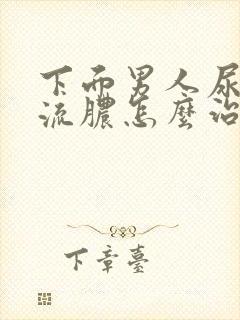 下而男人尿
流膿怎麼治
下章臺